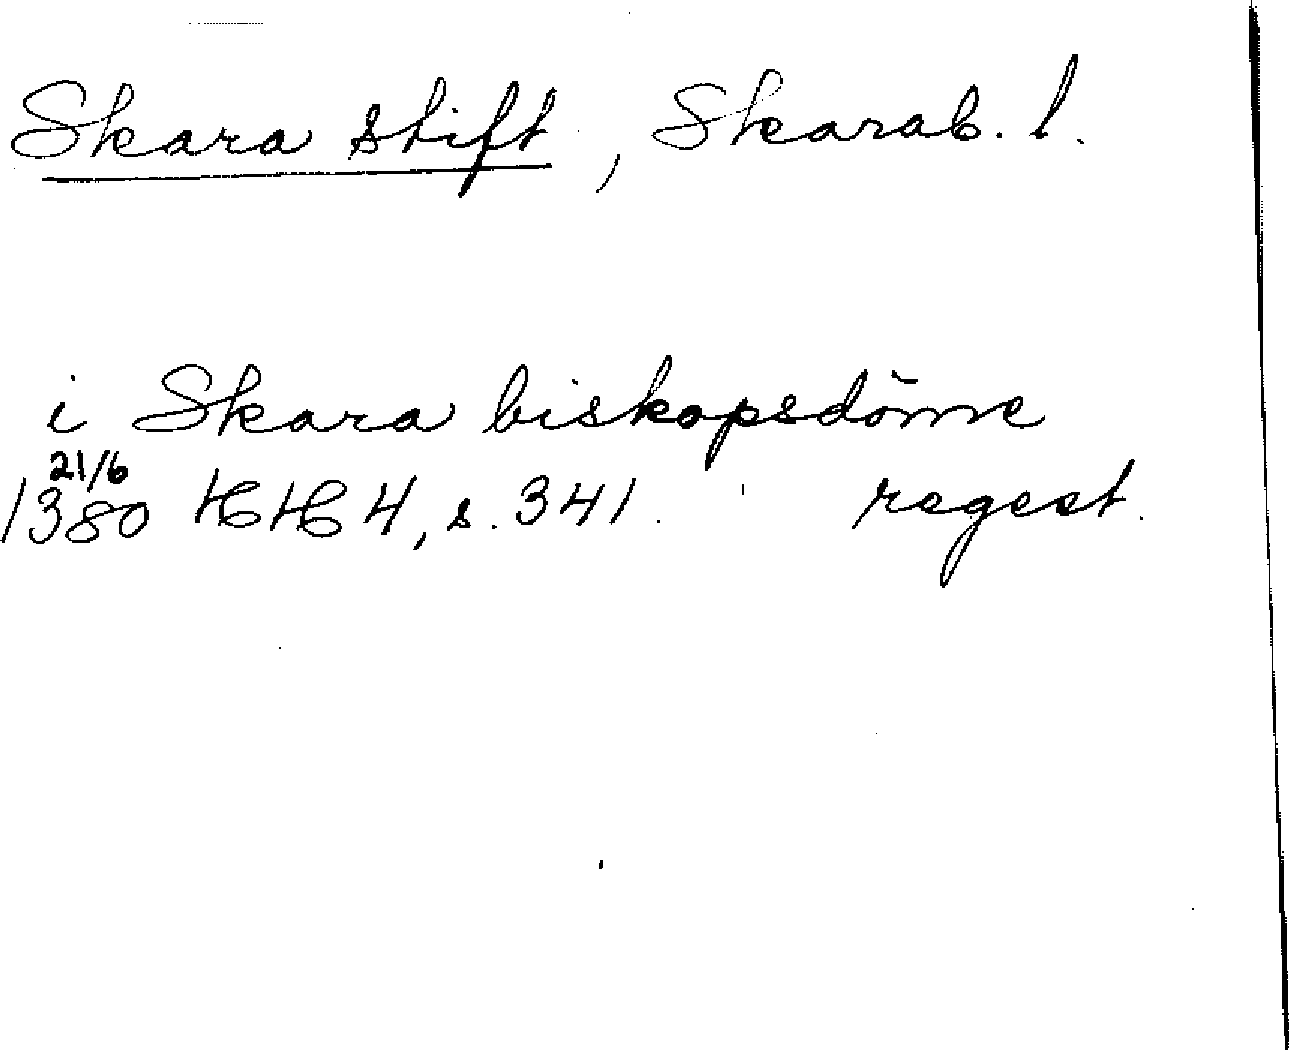 Skara stift, Skarab. l.
i Skara biskopsdöme
21/6
1380 HH 4, s. 341. regest.